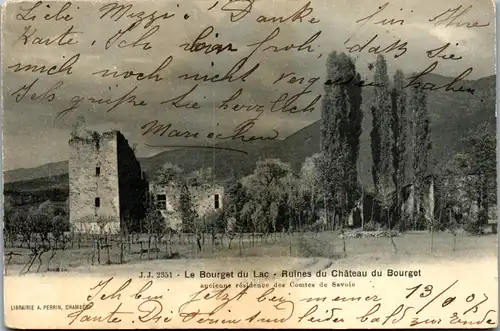 Liebe Mizzi! Danke für Ihre
Karte. Ich bin froh, daß Sie
mich noch nicht vergessen haben
Ich grüße Sie herzlich
Mariechen
J. J. 2351 - Le Bourget du Lac - Ruines du Château du Bourget
ancienne résidence des Comtes de Savoie
LIBRAIRIE A. PERRIN, CHAMBÉRY
Ich bin jetzt bei meiner 13/9 07
Tante. Die Ferien sind leider bald zur Ende